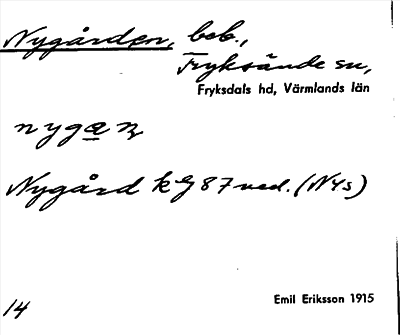 Nygården, beb.,
Fryksände sn,
Fryksdals hd, Värmlands län
nygan
Nygård k 87 ned. (N4s)
14
Emil Eriksson 1915